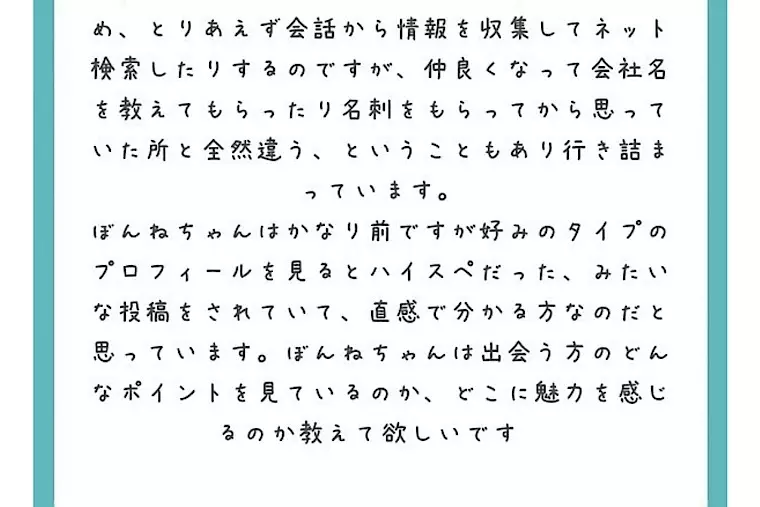 め、とりあえず会話から情報を収集してネット
検索したりするのですが、仲良くなって会社名
を教えてもらったり名刺をもらってから思って
いた所と全然違う、ということもあり行き詰ま
っています。
ぼんねちゃんはかなり前ですが好みのタイプの
プロフィールを見るとハイスペだった、みたい
な投稿をされていて、直感で分かる方なのだと
思っています。ぼんねちゃんは出会う方のどん
なポイントを見ているのか、どこに魅力を感じ
るのか教えて欲しいです